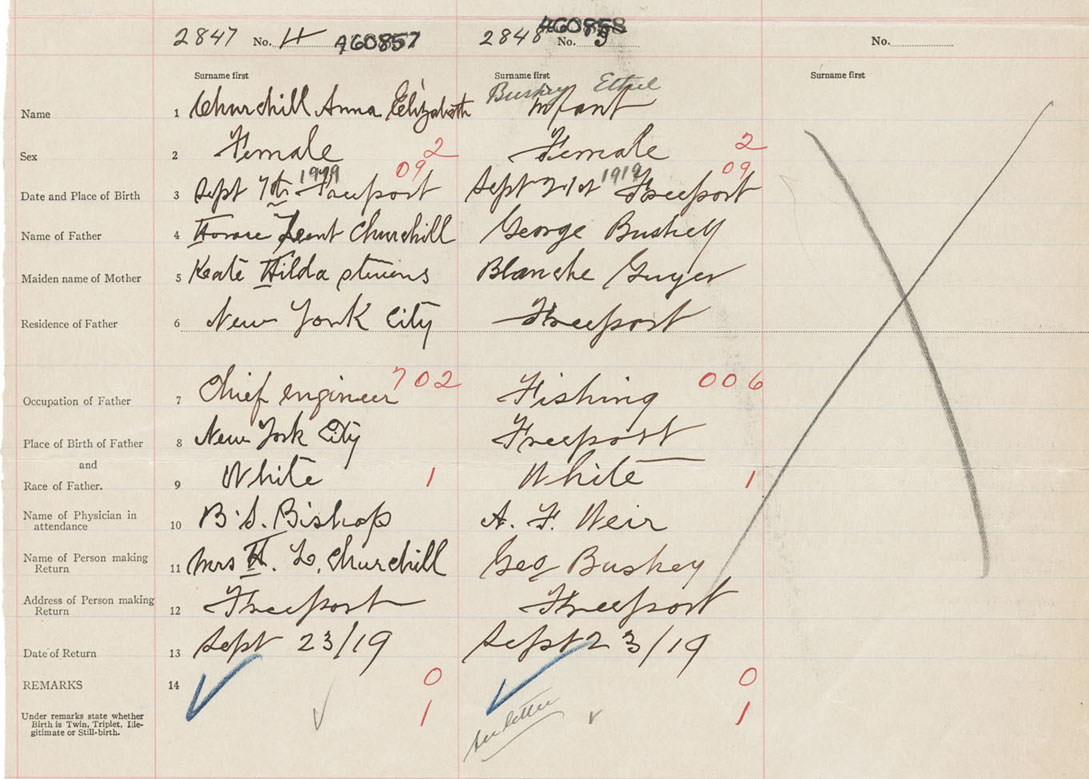 2847 No. 4 A60857 2848 No. 5 A60858 No.
Surname first Surname first Surname first
Buskey Ethel
Name 1 Churchill Anna Elizabeth Infant
Sex 2 Female 2 Female 2
09 09
Date and Place of Birth 3 Sept 7th 1919 Freeport Sept 21st 1919 Freeport
Name of Father 4 Horace Churchill George Buskey
Maiden name of Mother 5 Kate Hilda Stevens Blanche Guyer
Residence of Father 6 New York City Freeport
Occupation of Father 7 Chief engineer 702 Fishing 006
Place of Birth of Father 8 New York City Freeport
and
Race of Father. 9 White 1 White 1
Name of Physician in
attendance 10 B. S. Bishop A. F. Weir
Name of Person making
Return 11 Mrs H. L. Churchill Geo Buskey
Address of Person making
Return 12 Freeport Freeport
Date of Return 13 Sept 23/19 Sept 23/19
REMARKS 14 0 0
Under remarks state whether
Birth is Twin, Triplet, Ille-
gitimate or Still-birth. 1 see letter 1